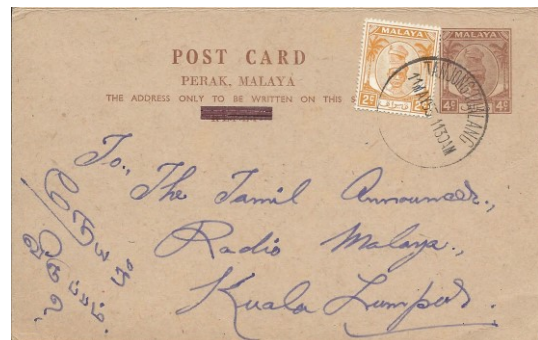 POST CARD
PERAK, MALAYA
THE ADDRESS ONLY TO BE WRITTEN ON THIS S
MALAYA
2c 2c
MALAYA
4c 4c
TANJONG MALANG
11 MAY 1130AM
To., The Tamil Announcer.,
Radio Malaya.,
Kuala Lumpur.
நேயர்
விருப்பம்.